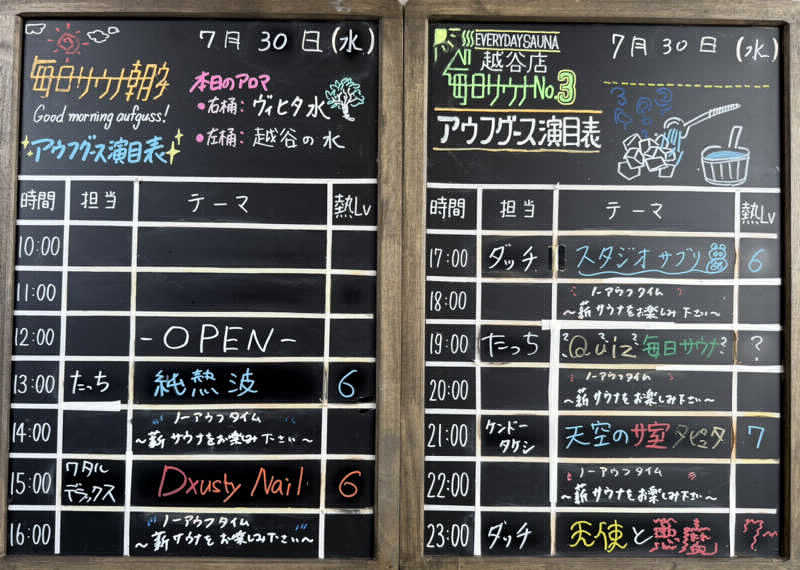 7月30日(水)
毎日サウナ朝名
Good morning aufguss!
アウフグース演目表
本日のアロマ
●右桶：ヴィヒタ水
●左桶：越谷の水
時間 担当 テーマ 熱Lv
10:00
11:00
12:00 -OPEN-
13:00 たっち 純熱波 6
14:00 ノーアウフタイム
〜薪サウナをお楽しみ下さい〜
15:00 ワタルデラックス Dxusty Nail 6
16:00 ノーアウフタイム
〜薪サウナをお楽しみ下さい〜
7月30日(水)
EVERYDAY SAUNA
越谷店
毎日サウナNo.3
アウフグース演目表
時間 担当 テーマ 熱Lv
17:00 ダッチ スタジオサプリ 6
18:00 ノーアウフタイム
〜薪サウナをお楽しみ下さい〜
19:00 たっち ?Quiz?毎日サウナ? ?
20:00 ノーアウフタイム
〜薪サウナをお楽しみ下さい〜
21:00 ケンドータケシ 天空のサ室タピュタ 7
22:00 ノーアウフタイム
〜薪サウナをお楽しみ下さい〜
23:00 ダッチ 天使と悪魔